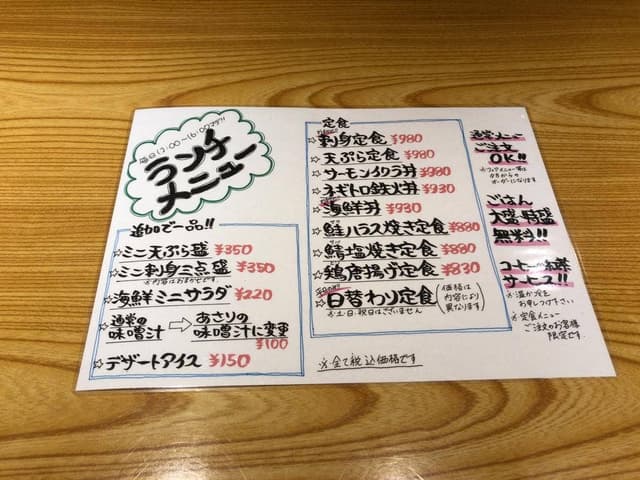 毎日12:00~16:00です!!
ランチ
メニュー
追加で一品!!
☆ミニ天ぷら盛 ¥350
☆ミニ刺身三点盛 ¥350
※内容はおまかせです。
☆海鮮ミニサラダ ¥220
☆通常の味噌汁 ⇨ あさりの味噌汁に変更
¥100
☆デザートアイス ¥150
定食
☆刺身定食 ¥980
☆天ぷら定食 ¥980
☆サーモンイクラ丼 ¥980
☆ネギトロ鉄火丼 ¥930
☆海鮮丼 ¥930
☆鮭ハラス焼き定食 ¥880
☆鯖塩焼き定食 ¥880
☆鶏唐揚げ定食 ¥830
☆日替わり定食 (価格は内容により異なります)
※土、日、祝日はございません
※全て税込価格です
通常メニュー
ご注文
OK!!
ごはん
大盛・特盛
無料!!
コーヒーor紅茶
サービス!!
※温か冷を
お申し付け下さい
※定食メニュー
ご注文のお客様
限定です。